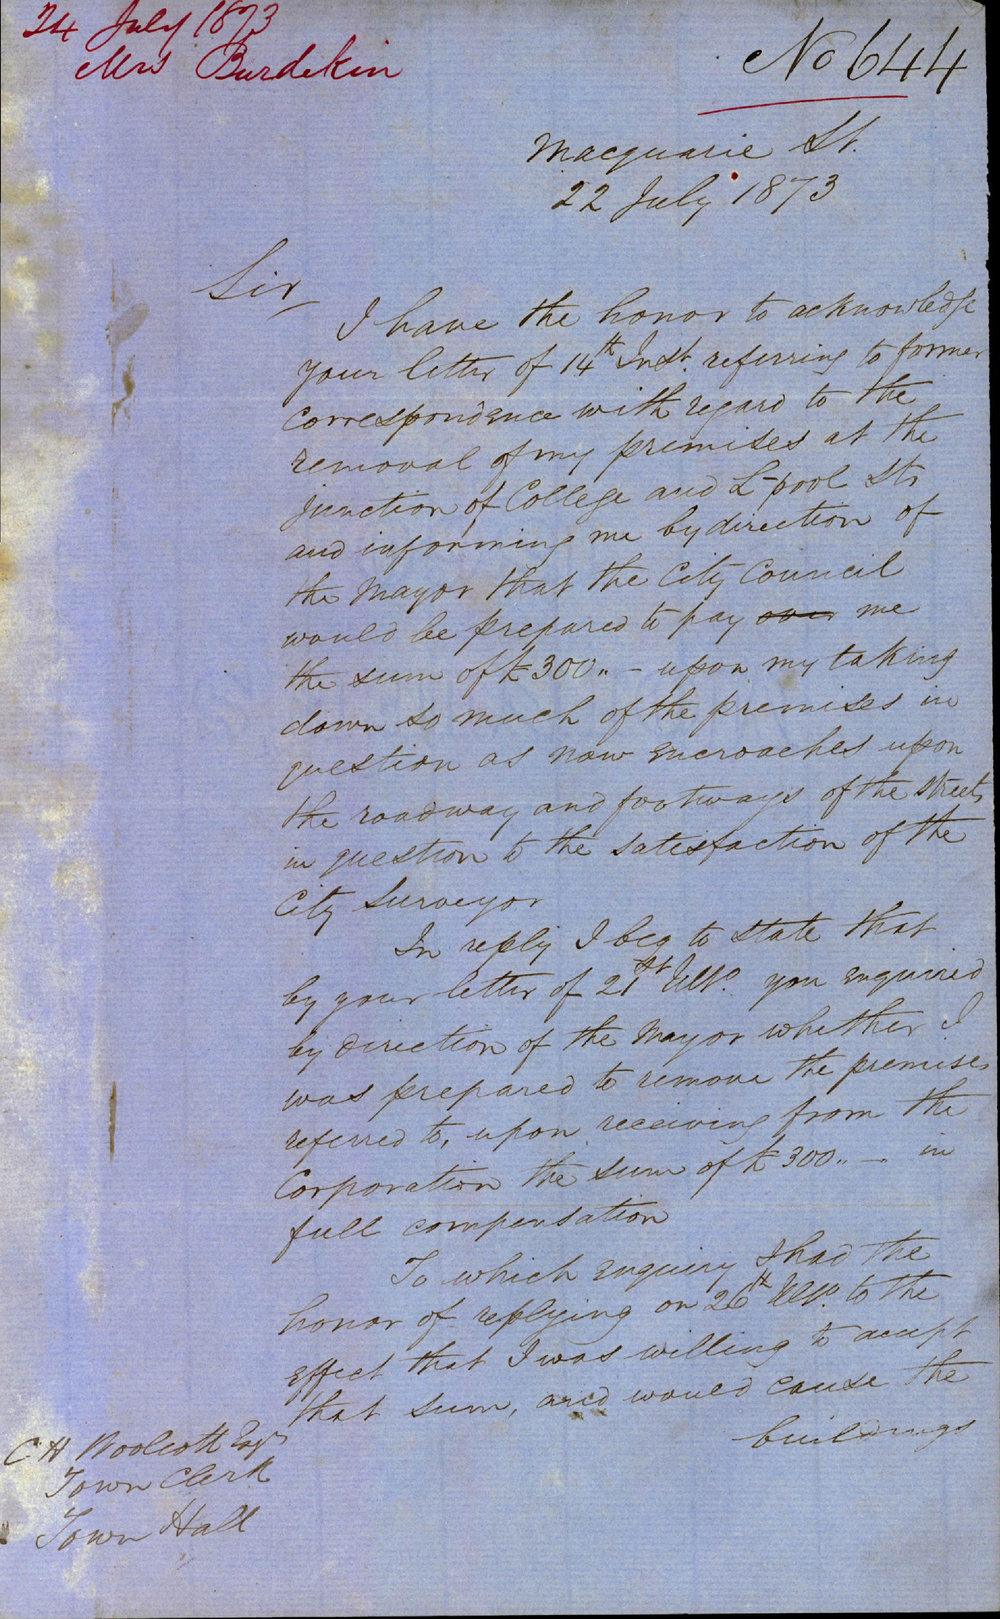 24 July 1873
Mrs Burdekin
No 644
Macquarie St.
22 July 1873
Sir
I have the honor to acknowledge
your letter of 14th Inst. referring to former
correspondence with regard to the
removal of my premises at the
junction of College and L-pool Sts
and informing me by direction of
the Mayor that the City Council
would be prepared to pay over me
the sum of £300.. - upon my taking
down so much of the premises in
question as now encroaches upon
the roadway and footways of the streets
in question to the satisfaction of the
City Surveyor
In reply I beg to state that
by your letter of 21st Ulto. you enquired
by direction of the Mayor whether I
was prepared to remove the premises
referred to, upon receiving from the
Corporation the sum of £300.. -. in
full compensation
To which enquiry I had the
honor of replying on 26th Ulto. to the
effect that I was willing to accept
that sum, and would cause the
buildings
C H Woolcott Esqr
Town Clerk
Town Hall